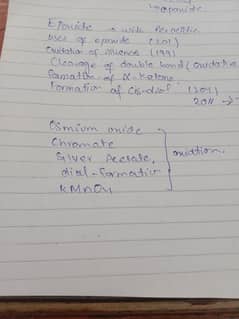 → epoxide
Epoxide → with Peracetic
Uses of epoxide (201)
Oxidation of (199)
Cleavage of double bond (Oxidative
Formation of α-Ketone
Formation of Cis-diol (201)
2011 →
Osmium oxide
Chromate
Silver Acetate
diol-Formation
KMnO4